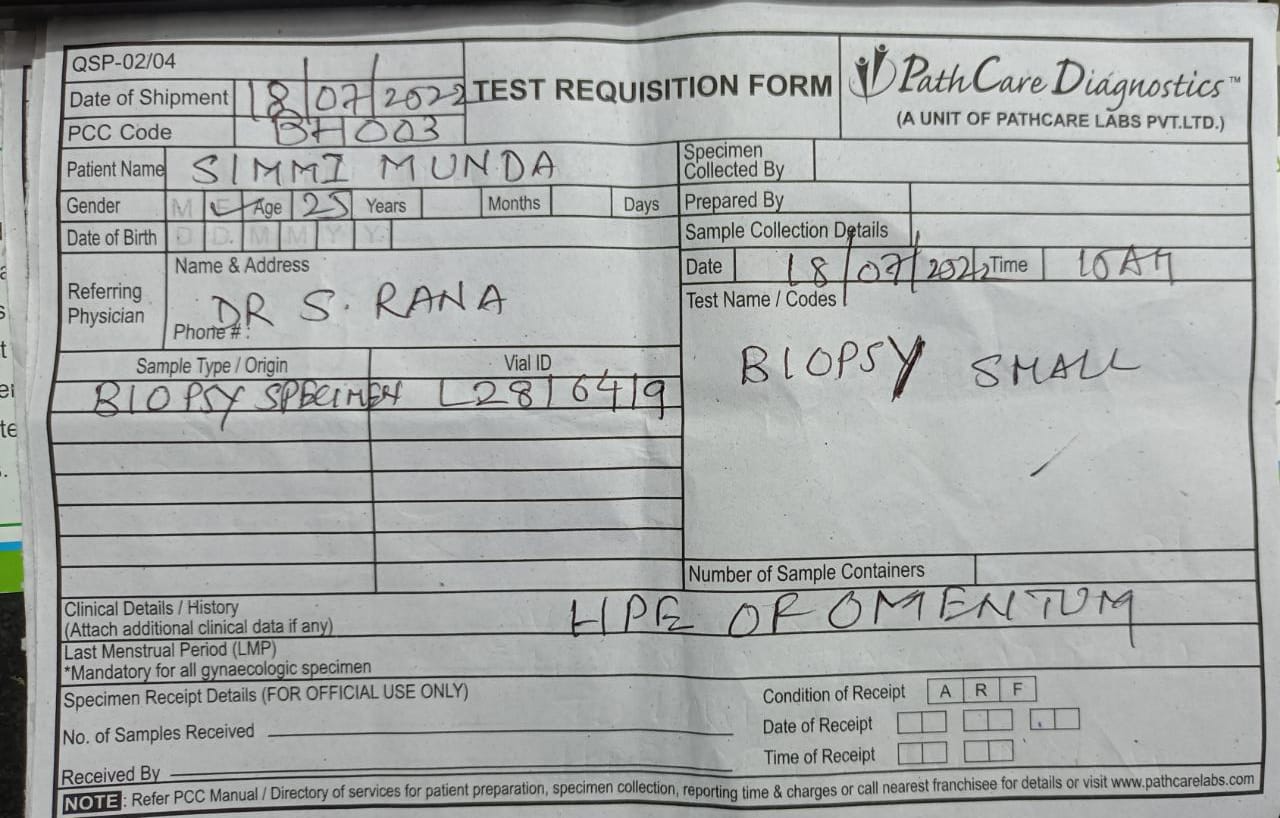 QSP-02/04
Date of Shipment 18/07/2022
PCC Code BH003
TEST REQUISITION FORM
PathCare Diagnostics™
(A UNIT OF PATHCARE LABS PVT.LTD.)
Patient Name SIMMI MUNDA
Specimen
Collected By
Gender M F ✓ Age 25 Years Months Days
Prepared By
Date of Birth D D M M Y Y
Sample Collection Details
Referring
Physician
Name & Address
DR S. RANA
Phone # :
Date 18/07/2022 Time 10AM
Test Name / Codes
BIOPSY SMALL
Sample Type / Origin Vial ID
BIOPSY SPECIMEN L2816419
Number of Sample Containers
Clinical Details / History
(Attach additional clinical data if any)
HPE OF OMENTUM
Last Menstrual Period (LMP)
*Mandatory for all gynaecologic specimen
Specimen Receipt Details (FOR OFFICIAL USE ONLY)
Condition of Receipt A R F
No. of Samples Received
Date of Receipt
Time of Receipt
Received By
NOTE : Refer PCC Manual / Directory of services for patient preparation, specimen collection, reporting time & charges or call nearest franchisee for details or visit www.pathcarelabs.com